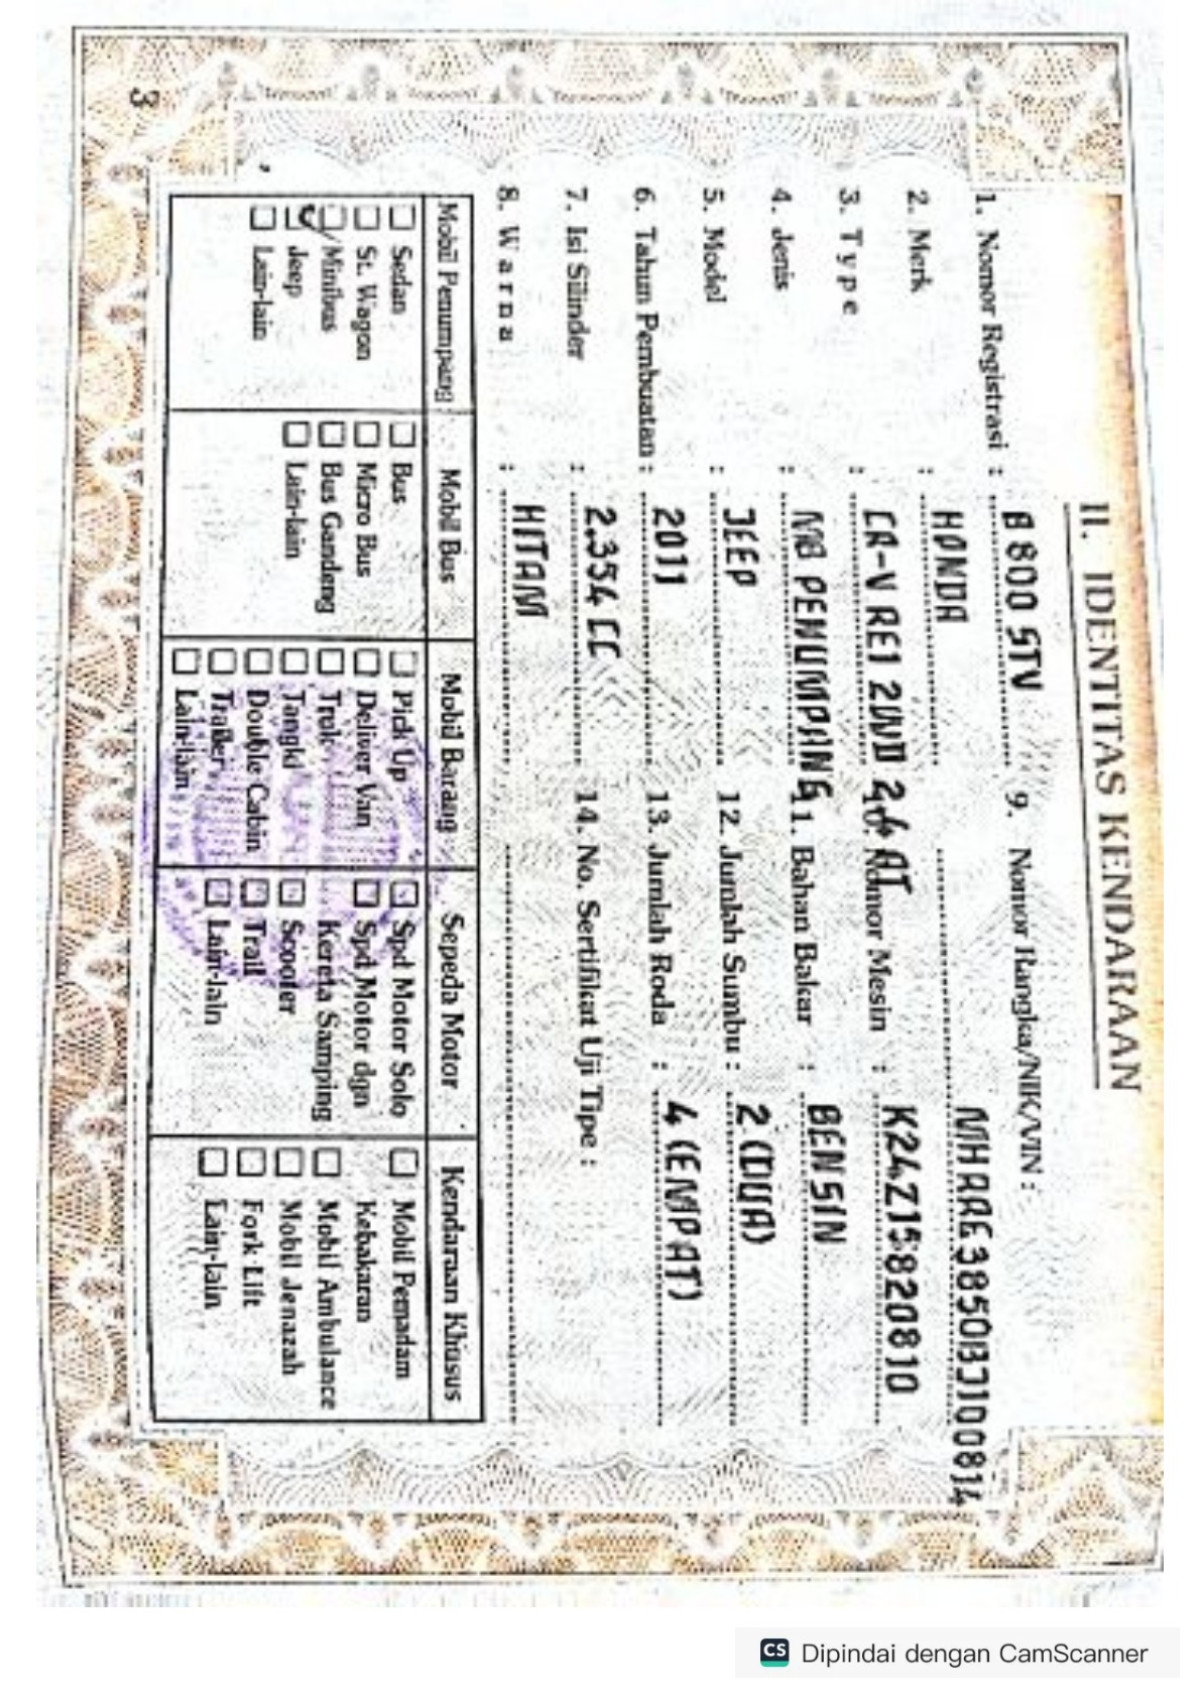 II. IDENTITAS KENDARAAN
1. Nomor Registrasi : B 800 STV
2. Merk : HONDA
3. Type : CR-V RE1 2WD 2.4 AT
4. Jenis : MB PENUMPANG
5. Model : JEEP
6. Tahun Pembuatan : 2011
7. Isi Silinder : 2.354 CC
8. Warna : HITAM
9. Nomor Rangka/NIK/VIN :
MHRRE3850BJ100814
10. Nomor Mesin : K24Z15820810
11. Bahan Bakar : BENSIN
12. Jumlah Sumbu : 2 (DUA)
13. Jumlah Roda : 4 (EMPAT)
14. No. Sertifikat Uji Tipe :
Mobil Penumpang
Sedan
St. Wagon
Minibus
Jeep
Lain-lain
Mobil Bus
Bus
Micro Bus
Bus Gandeng
Lain-lain
Mobil Barang
Pick Up
Deliver Van
Truk
Tangki
Double Cabin
Trailer
Lain-lain
Sepeda Motor
Spd Motor Solo
Spd Motor dgn
Kereta Samping
Scooter
Trail
Lain-lain
Kendaraan Khusus
Mobil Pemadam
Kebakaran
Mobil Ambulance
Mobil Jenazah
Fork Lift
Lain-lain
3
CS Dipindai dengan CamScanner